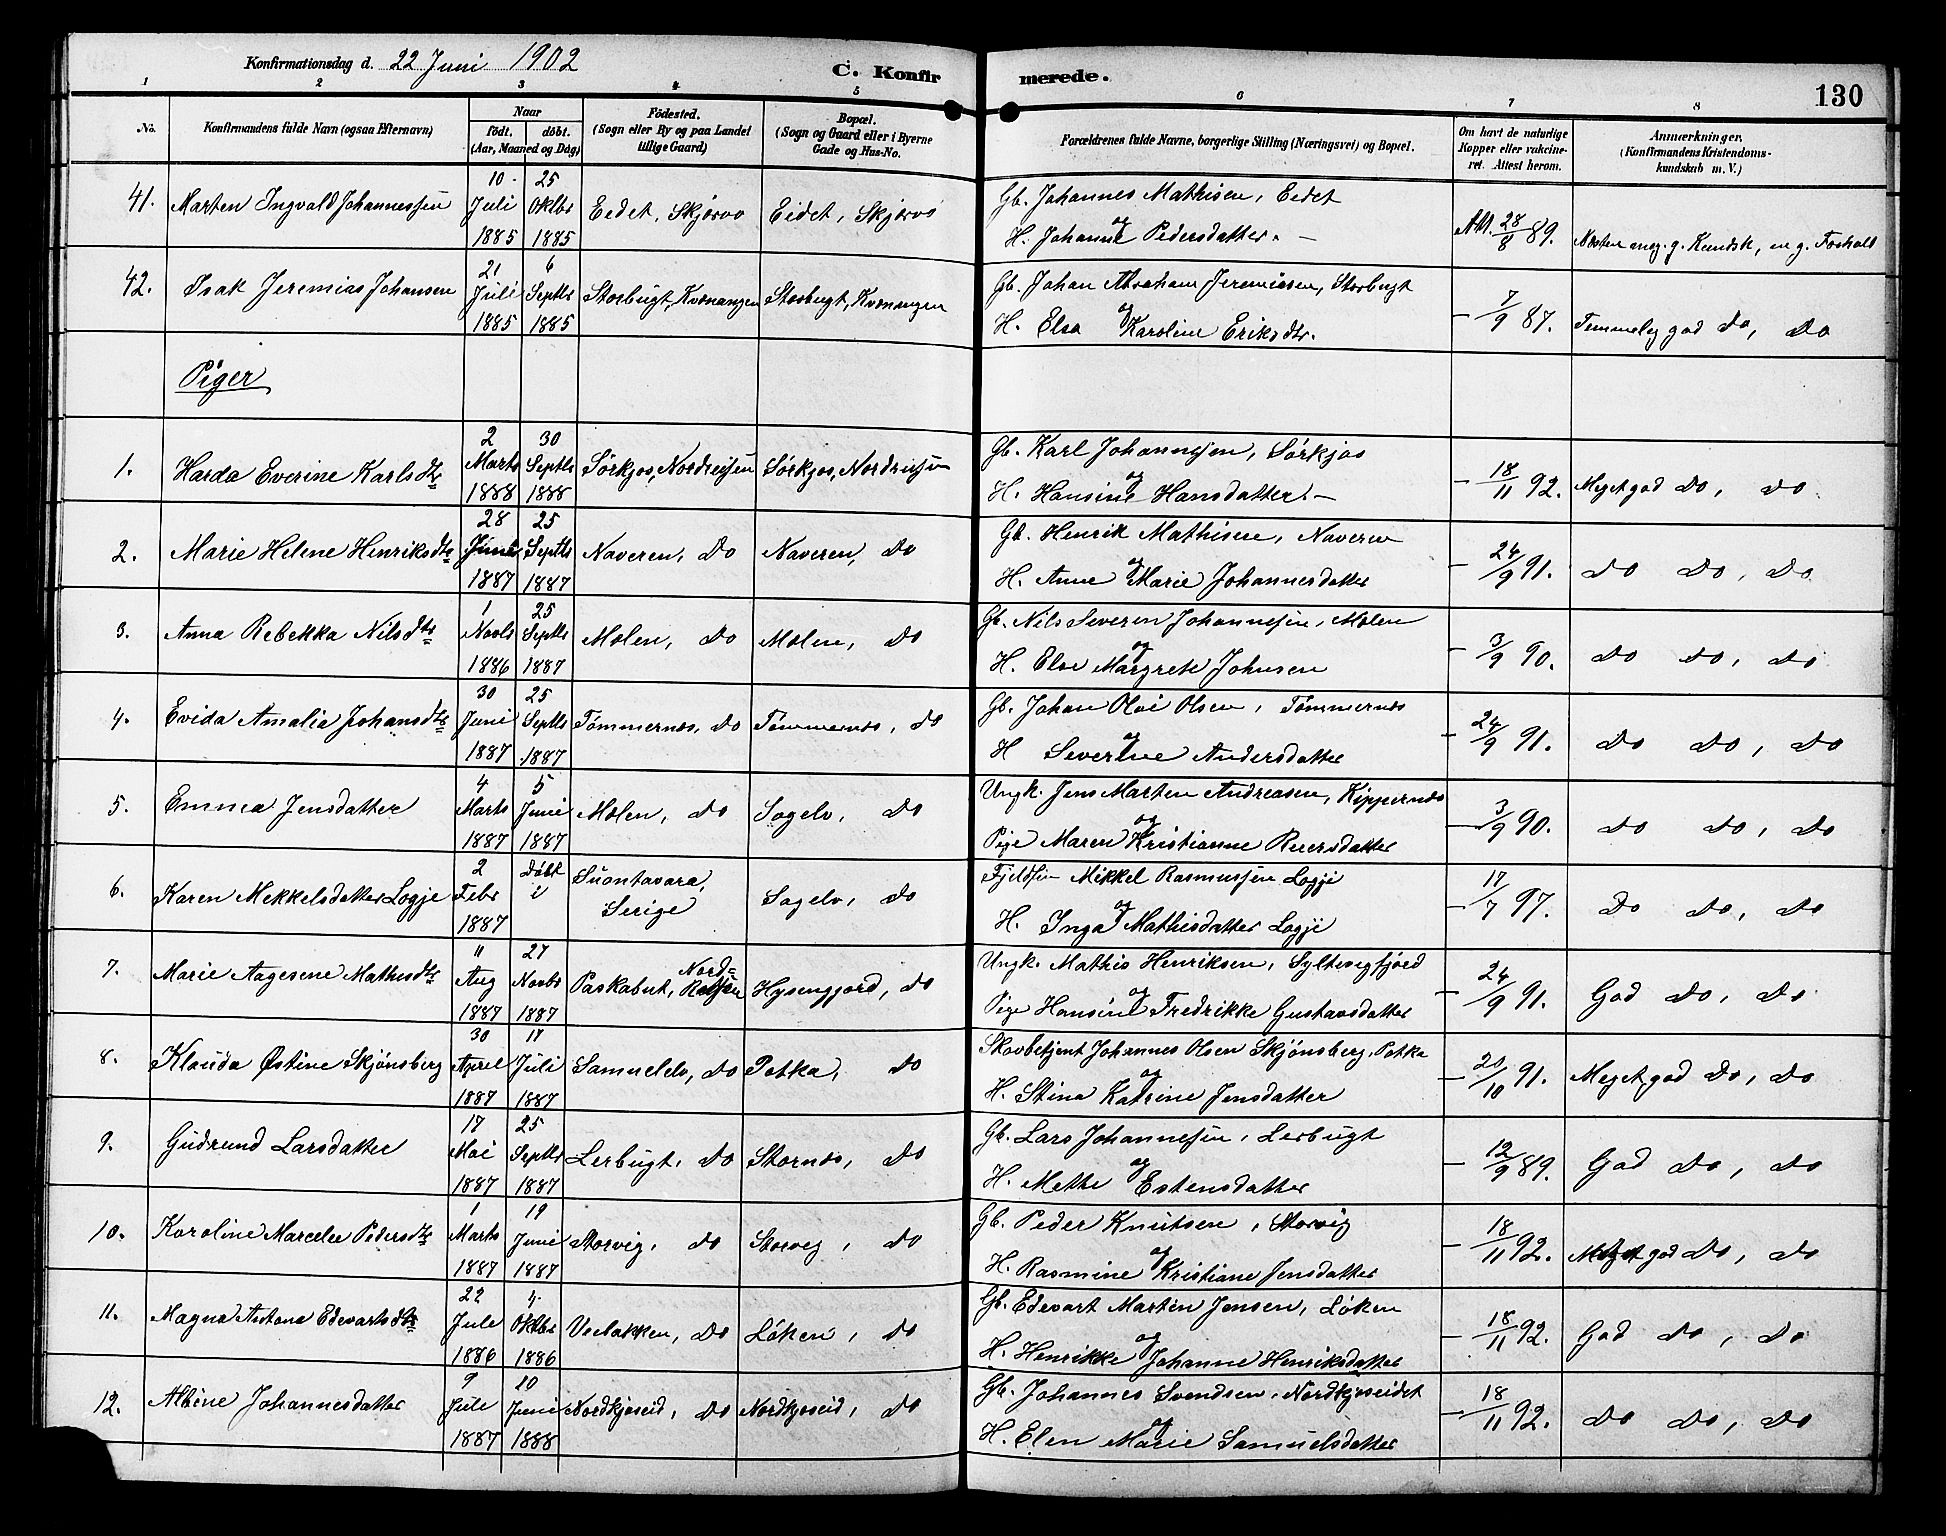 Konfirmationsdag d. 22 Juni 1902
C. Konfirmerede.
130
1 2 3 4 5 6 7 8
No. Konfirmandens fulde Navn (ogsaa Efternavn) Naar födt. döbt. (Aar, Maaned og Dag) Födested. (Sogn eller By og paa Landet tillige Gaard) Bopæl. (Sogn og Gaard eller i Byerne Gade og Hus-No. Forældrenes fulde Navne, borgerlige Stilling (Næringsvei) og Bopæl. Om havt de naturlige Kopper eller vakcineret. Attest herom. Anmærkninger. (Konfirmandens Kristendomskundskab m. V.)
41. Marten Ingvald Johannessen 10 Juli 1885 25 Oktbr 1885 Eidet, Skjærvø Eidet, Skjærvø Gb. Johannes Mathisen, Eidet og H. Johanne Pedersdatter. — Att. 28/8 89. Næsten meg. g. Kundsk, m g. Forhold
42. Isak Jeremias Johansen 21 Juli 1885 6 Septbr 1885 Storbugt, Kvænangen Storbugt, Kvænangen Gb. Johan Abraham Jeremiasen, Storbugt og H. Elsa Karoline Eriksdtr. — 7/9 87. Temmelig god Do, Do
Piger
1. Harda Everine Karlsdtr 2 Marts 1888 30 Septbr 1888 Sørkjos, Nordreisen Sørkjos, Nordreisen Gb. Karl Johannesen, Sørkjos og H. Hansine Hansdatter. — — 18/11 92. Meget god Do, Do
2. Marie Helene Henriksdtr 28 Juni 1887 25 Septbr 1887 Naveren, Do Naveren, Do Gb. Henrik Mathisen, Naveren og H. Anne Marie Johannesdatter — 24/9 91. Do Do, Do
3. Anna Rebekka Nilsdtr 1 Novbr 1886 25 Septbr 1887 Molen, Do Molen, Do Gb. Nils Severin Johannesen, Molen og H. Else Margrete Johnsen — 3/9 90. Do Do, Do
4. Evida Amalie Johansdtr 30 Juni 1887 25 Septbr 1887 Tømmernes, Do Tømmernes, Do Gb. Johan Olai Olsen, Tømmernes og H Severine Andersdatter — 24/9 91. Do Do, Do
5. Emma Jensdatter 4 Marts 1887 5 Juni 1887 Molen, Do Sagelv, Do Ungk. Jens Marten Andreasen, Kippernes og Pige Maren Kristianne Reiersdatter — 3/9 90. Do Do, Do
6. Karen Mekkelsdatter Logje 2 Febr 1887 Døbt i Suontavara, Serige Sagelv, Do Fjeldfin Mikkel Rasmussen Logji og H. Inga Mathisdatter Logji — 17/7 97. Do Do, Do
7. Marie Aagesene Mathisdtr 11 Aug 1887 27 Novbr 1887 Paskabut, Nord-Reisen Hysengjord, Do Ungk. Mathis Henriksen, Syltevigfjord og Pige Hansine Fredrikke Gustavsdatter — 24/9 91. God Do, Do
8. Klauda Østine Skjønsberg 30 April 1887 17 Juli 1887 Samuelelv, Do Potka, Do Skovbetjent Johannes Olsen Skjønsberg, Potka og H. Stina Katrine Jensdatter — 20/10 91. Meget god Do, Do
9. Gudrund Larsdatter 17 Mai 1887 25 Septbr 1887 Lerbugt, Do Stornes, Do Gb. Lars Johannesen, Lerbugt og H. Methe Estensdatter — 12/9 89. God Do, Do
10. Karoline Marcelie Pedersdtr 1 Marts 1887 19 Juni 1887 Storvig, Do Storveg, Do Gb. Peder Knutsen, Storvig og H. Rasmine Kristiane Jensdatter — 18/11 92. Meget god Do, Do
11. Magna Antona Edevartsdtr 22 Jule 1886 4 Oktbr 1886 Veibakken, Do Løken, Do Gb. Edevart Martin Jensen, Løken og H. Henrikke Johanne Henriksdatter — 18/11 92. God Do, Do
12. Albine Johannesdatter 9 Jule 1887 10 Juni 1888 Nordkjoseid, Do Nordkjoseid, Do Gb. Johannes Svendsen, Nordkjoseidet og H. Elen Marie Samuelsdatter — 18/11 92. Do Do, Do